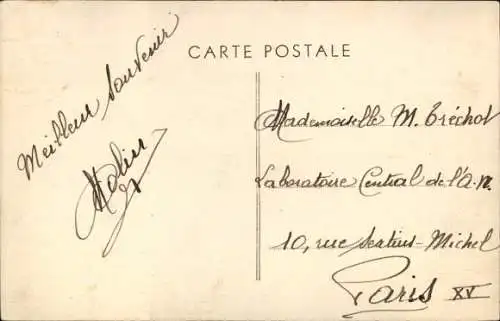 CARTE POSTALE
Meilleur Souvenir
Mademoiselle M. Tréchot
Laboratoire Central de l'A.N.
10, rue Sextius-Michel
Paris XV